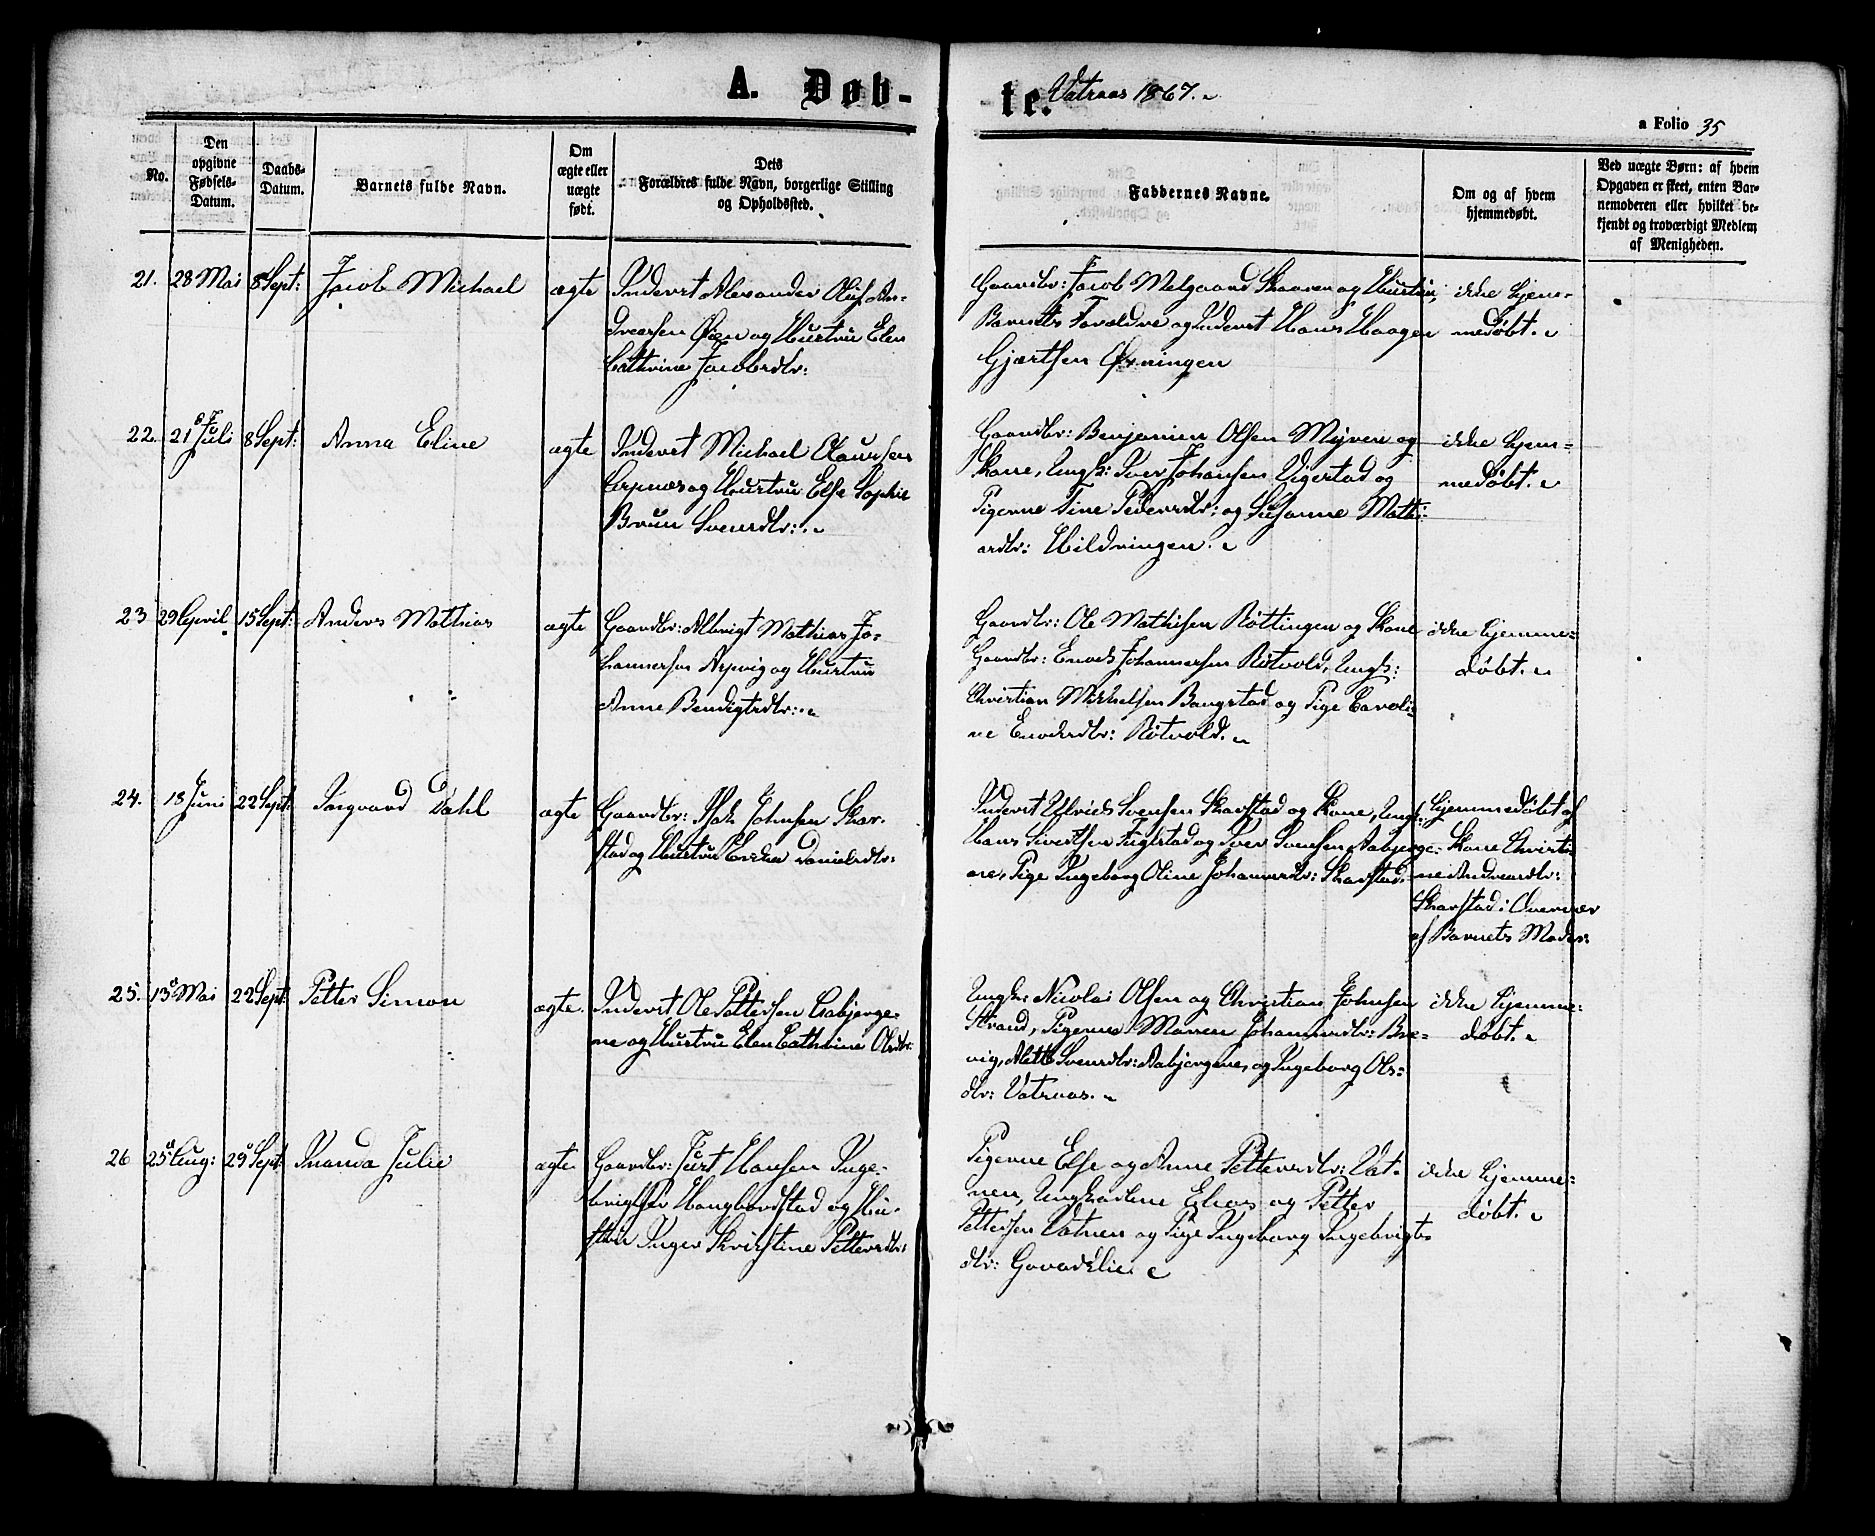 A. Døb-
te. Vatraas 1867.
a Folio 35
No.
Den
opgivne
Fødsels-
Datum.
Daabs-
Datum.
Barnets fulde Navn.
Om
ægte eller
uægte
født.
Dets
Forældres fulde Navn, borgerlige Stilling
og Opholdssted.
Faddernes Navne.
Om og af hvem
hjemmedøbt.
Ved uægte Børn: af hvem
Opgaven er skeet, enten Bar-
nemoderen eller hvilket be-
kjendt og troværdigt Medlem
af Menigheden.
21. 28 Mai 8 Sept: Jacob Michael ægte
Inderst Alexander Oluf An-
dreasen Øxen og Hustru Elen
Cathrine Jacobsdtr:
Gaardbr: Jacob Melgaard Skaaren og Hustru,
Barnets Forældre og Inderst Hans Haagen
Gjærtsen Øxningen
ikke hjem-
medøbt.
22. 21 Juli 8 Sept: Anna Eline ægte
Inderst Michael Claussen
og Hustru Else Sophie
Brun Svensdtr:
Gaardbr: Benjamin Olsen Myren og
Kone, Ungk: Iver Johansen Vigestad og
Pigerne Sine Pedersdtr: og Susanne Math:
dtr: Hildringen.
ikke hjem-
medøbt.
23 29 April 15 Sept: Anders Mathias ægte
Gaardbr: Albrigt Mathias Jo-
hannessen Arpvig og Hustru
Anne Bendigtsdtr:
Gaardbr: Ole Mathisen Røttingen og Kone
Gaardbr: Enoch Johannessen Røtvold, Ungk:
Christian Michelsen Bangstad og Pige Caroli-
ne Enochsdtr: Røtvold.
ikke hjemme-
døbt.
24. 18 Juni 22 Sept: Ingvard Dahl ægte
Gaardbr: Isak Johnsen Skar-
stad og Hustru Danielsdtr:
Inderst Svensen Skarstad og Kone, Ungk:
Hans Sivertsen og Iver Svensen Aabjørge-
ne, Pige Ingeborg Oline Johannesdtr: Skarstad.
hjemmedøbt af
Kone Christi-
ne Andreasdtr:
Skarstad i Overvær
af Barnets Moder.
25. 13 Mai 22 Sept: Petter Simon ægte.
Inderst Ole Pettersen Aabjørge-
ne og Hustru Elen Cathrine Olsdtr:
Ungk: Nicolai Olsen og Christian Johnsen
Strand, Pigerne Maren Johannesdtr: Bre-
vig, Mette Svensdtr: Aabjørgene, og Ingeborg Ols-
dtr: Vatraas.
ikke hjemme-
døbt.
26 25 Aug: 29 Sept: Julie ægte
Gaardbr: Kurt Hansen Inge-
brigtsen Hongbordstad og Hu-
stru Inger Kristine Pettersdtr:
Pigerne Else og Anne Pettersdtr: Vat-
nen, Ungkarlene Elias og Petter
Pettersen Vatnen og Pige Ingeborg Ingebrigts-
dtr: Gaardslien
ikke hjemme-
døbt.